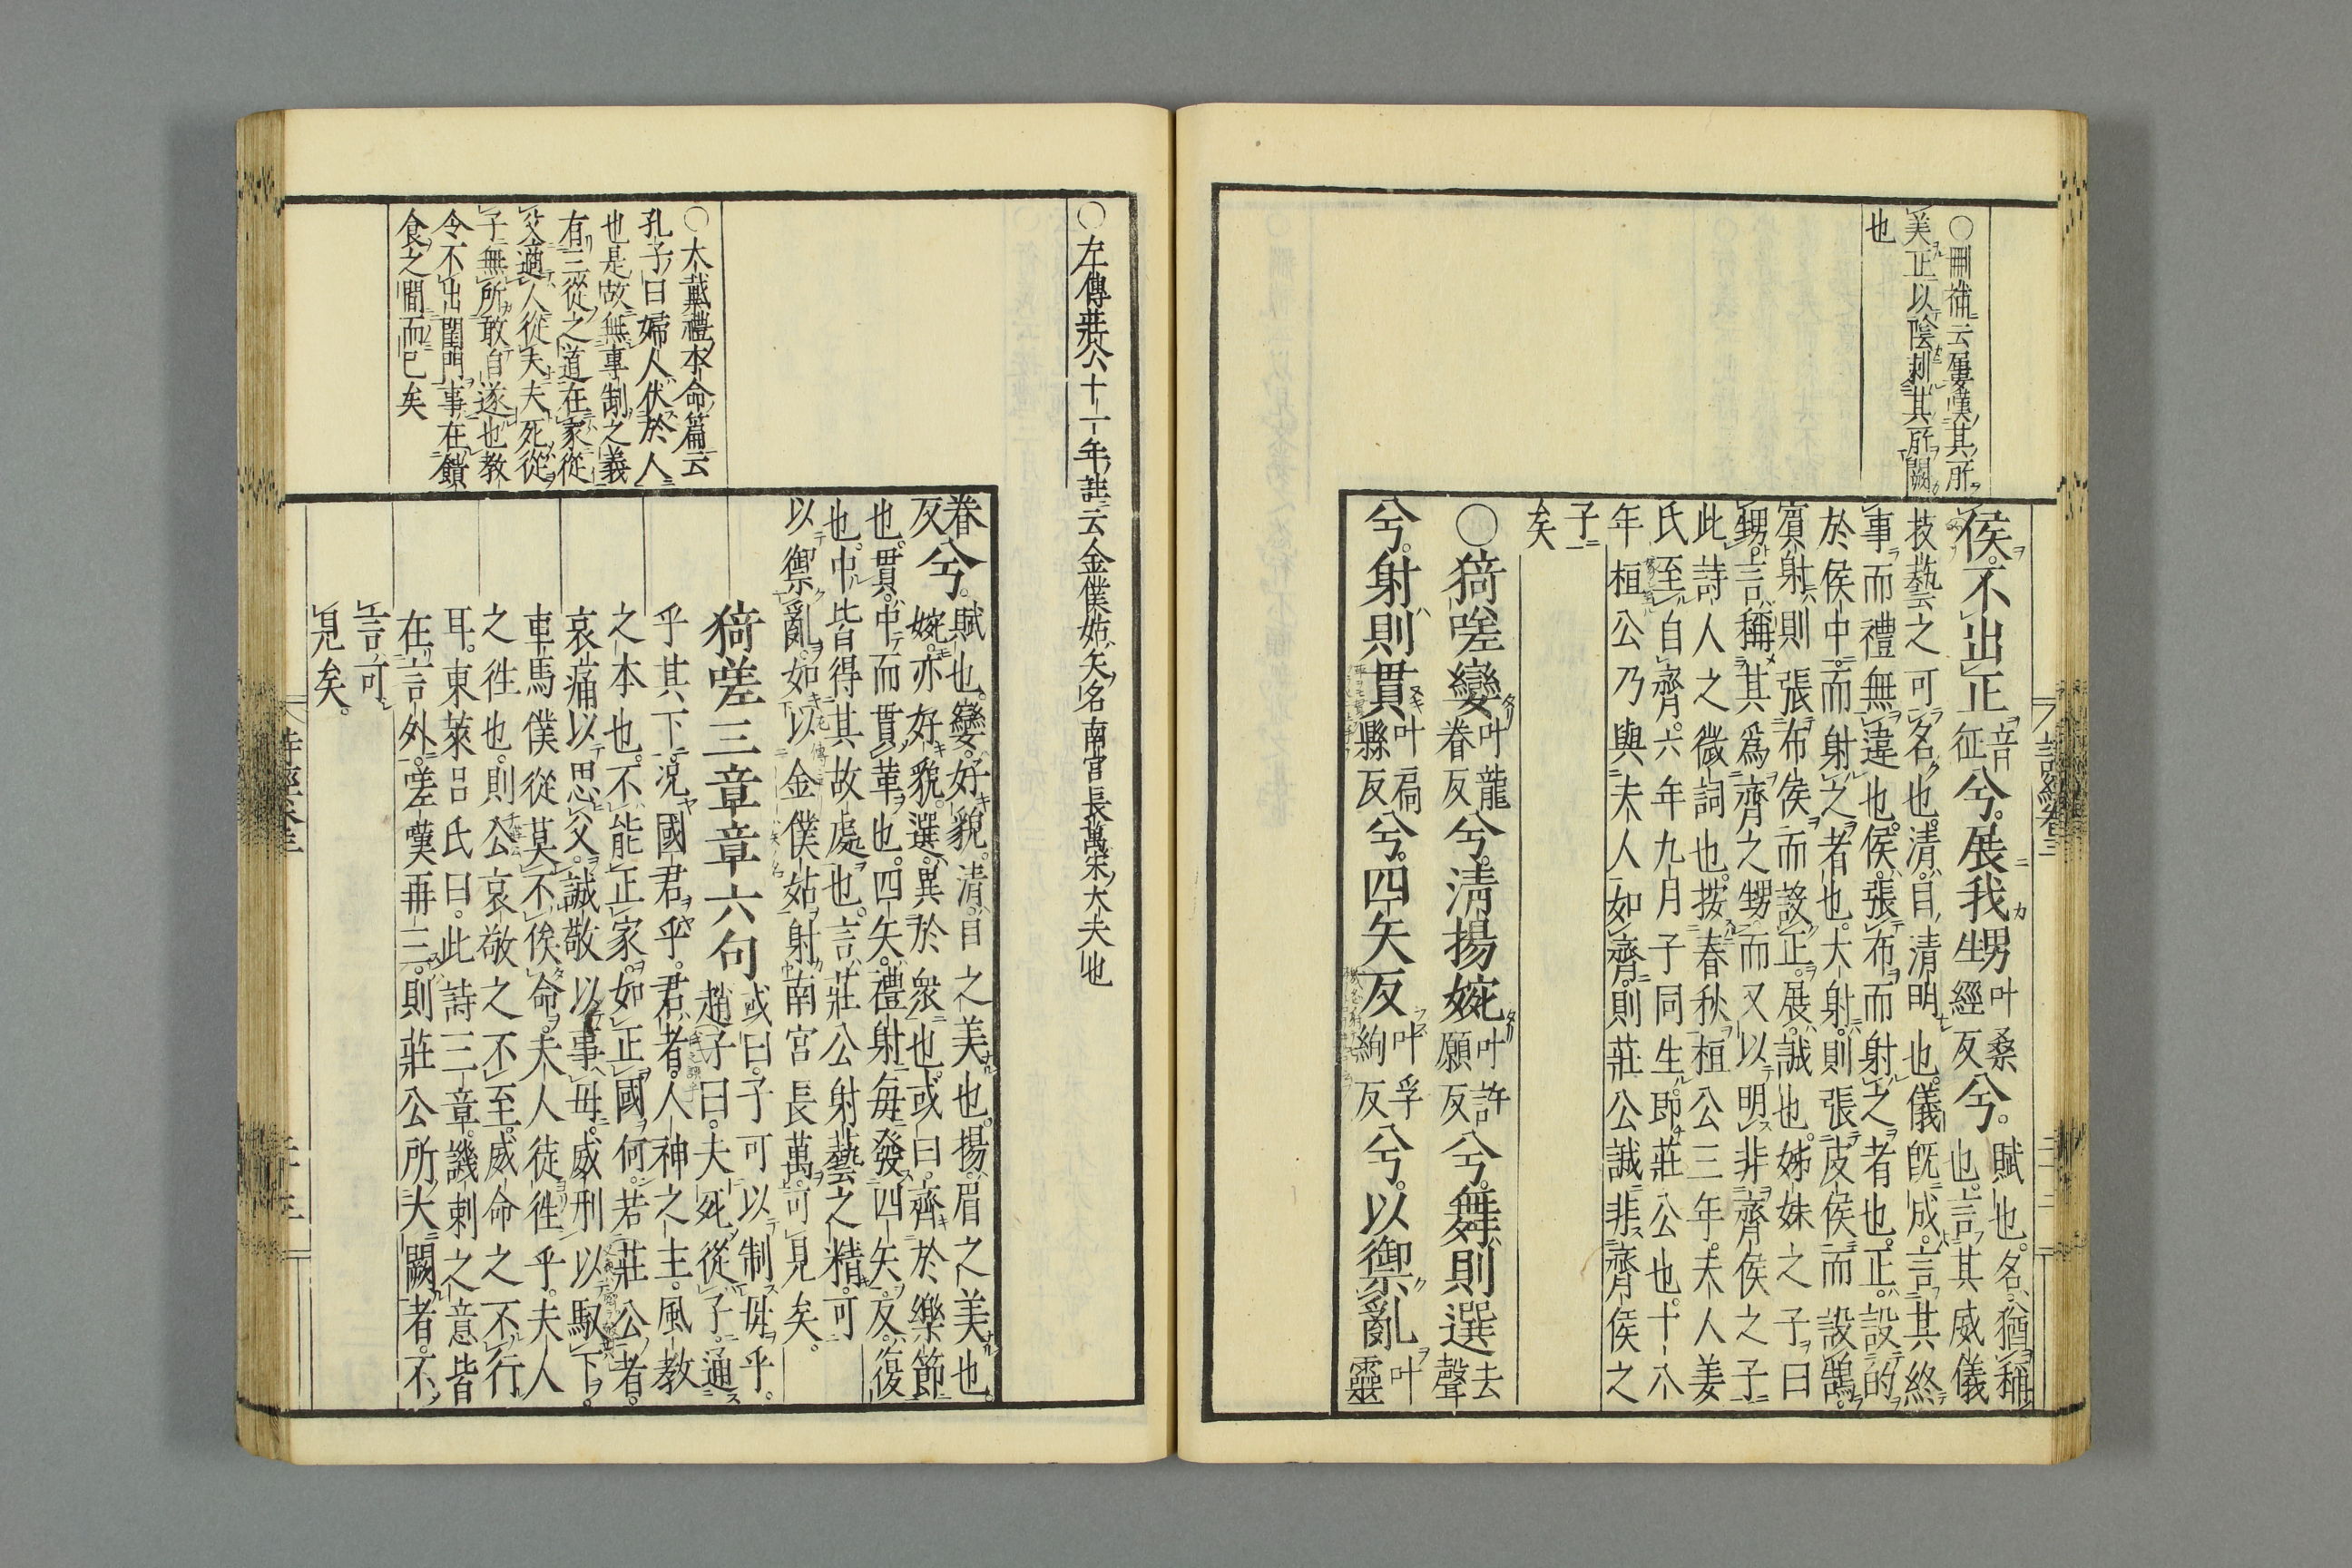 詩經卷三
○刪補云屢嘆其所
美正以陰刺其所闕
也
侯。不出正音征兮。展我甥叶桑經反兮。賦也。名猶稱也。言其威儀
技藝之可名也。清。目清明也。儀既成。言其終
事而禮無違也。侯。張布而射之者也。正。設的
於侯中。而射之者也。大射。則張皮侯。而設鵠。
賓射。則張布侯。而設正。展。誠也。姊妹之子曰
甥。言稱其爲齊之甥。而又以明非齊侯之子
此詩人之微詞也。按春秋桓公三年。夫人姜
氏至自齊。六年九月子同生。即莊公也。十八
年桓公乃與夫人如齊。則莊公誠非齊侯之
子
矣
○猗嗟孌叶龍眷反兮。清揚婉叶許願反兮。舞則選去聲
兮。射則貫叶扃縣反兮。四矢反叶孚絢反兮。以禦亂叶靈
○左傳莊公十一年註云金僕姑矢名南宮長萬宋大夫也
○大戴禮本命篇云
孔子曰婦人伏於人
也是故無專制之義
有三從之道在家從
父適人從夫夫死從
子無所敢自遂也教
令不出閨門事在饋
食之間而已矣
眷反兮。賦也。孌。好貌。清。目之美也。揚。眉之美也。
婉。亦好貌。選。異於衆也。或曰。齊於樂節
也。貫。中而貫革也。四矢。禮射每發四矢。反。復
也。中皆得其故處也。言莊公射藝之精。可
以禦亂。如以金僕姑射南宮長萬。可見矣。
猗嗟三章章六句 或曰。子可以制母乎。
趙子曰。夫死從子。通
乎其下。況國君乎。君者。人神之主。風教
之本也。不能正家。如正國何。若莊公者。
哀痛以思父。誠敬以事母。威刑以馭下。
車馬僕從莫不俟命。夫人徒往乎。夫人
之往也。則公哀敬之不至。威命之不行
耳。東萊呂氏曰。此詩三章。譏刺之意皆
在言外。嗟嘆再三。則莊公所大闕者。不
言可
見矣。
詩經卷三